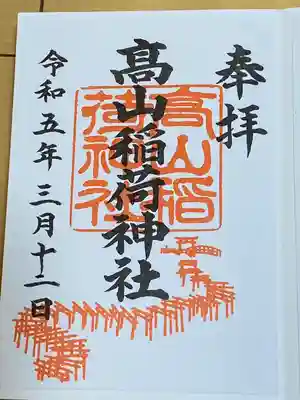 奉拝
髙山稲荷神社
髙山稲
荷神社
令和五年三月十二日